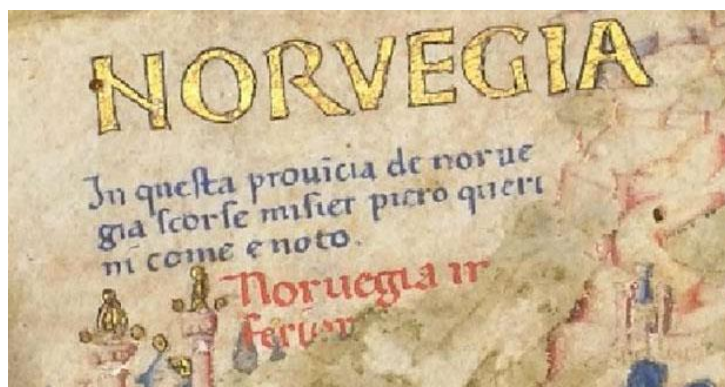 NORVEGIA
In questa prouicia de norue
gia scorse misier piero queri
ni come e noto.
Noruegia in
ferior